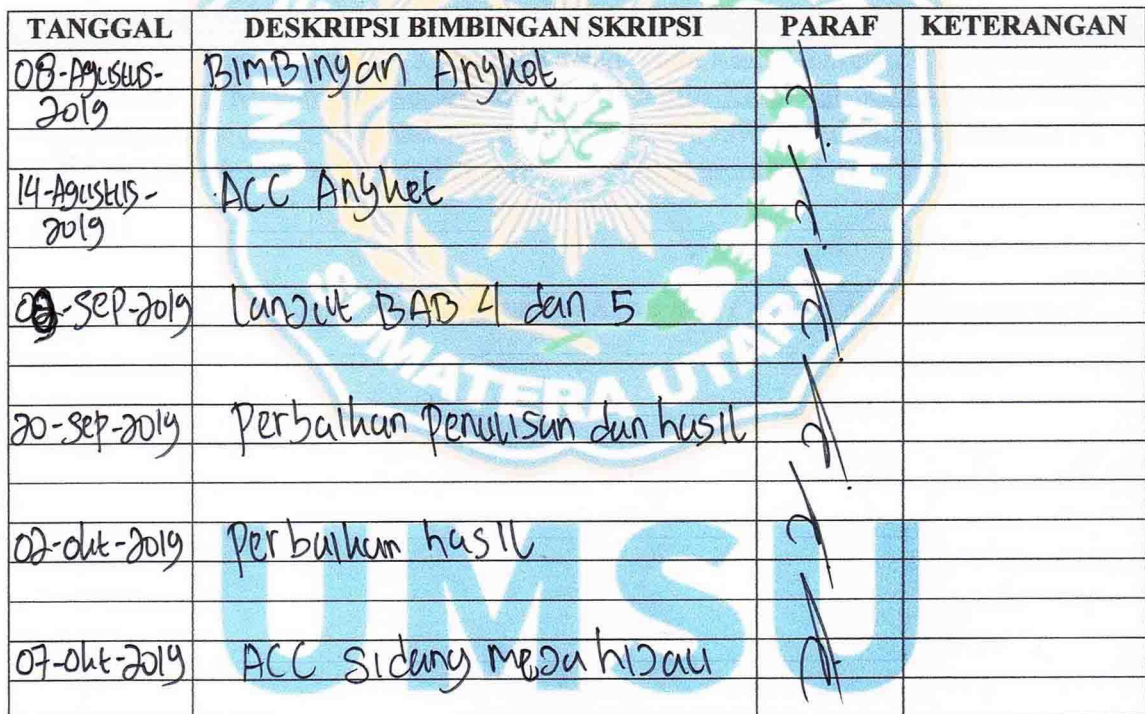 TANGGAL DESKRIPSI BIMBINGAN SKRIPSI PARAF KETERANGAN
08-Agustus- BIMBINgan Angket
2019
14-Agustus- ACC Angket
2019
-SEP-2019 Lanjut BAB 4 dan 5
20-SEP-2019 Perbaikan Penulisan dan hasil
02-okt-2019 Perbaikan hasil
07-Okt-2019 ACC Sidang meja hijau
SUMATERA UTARA
UMSU